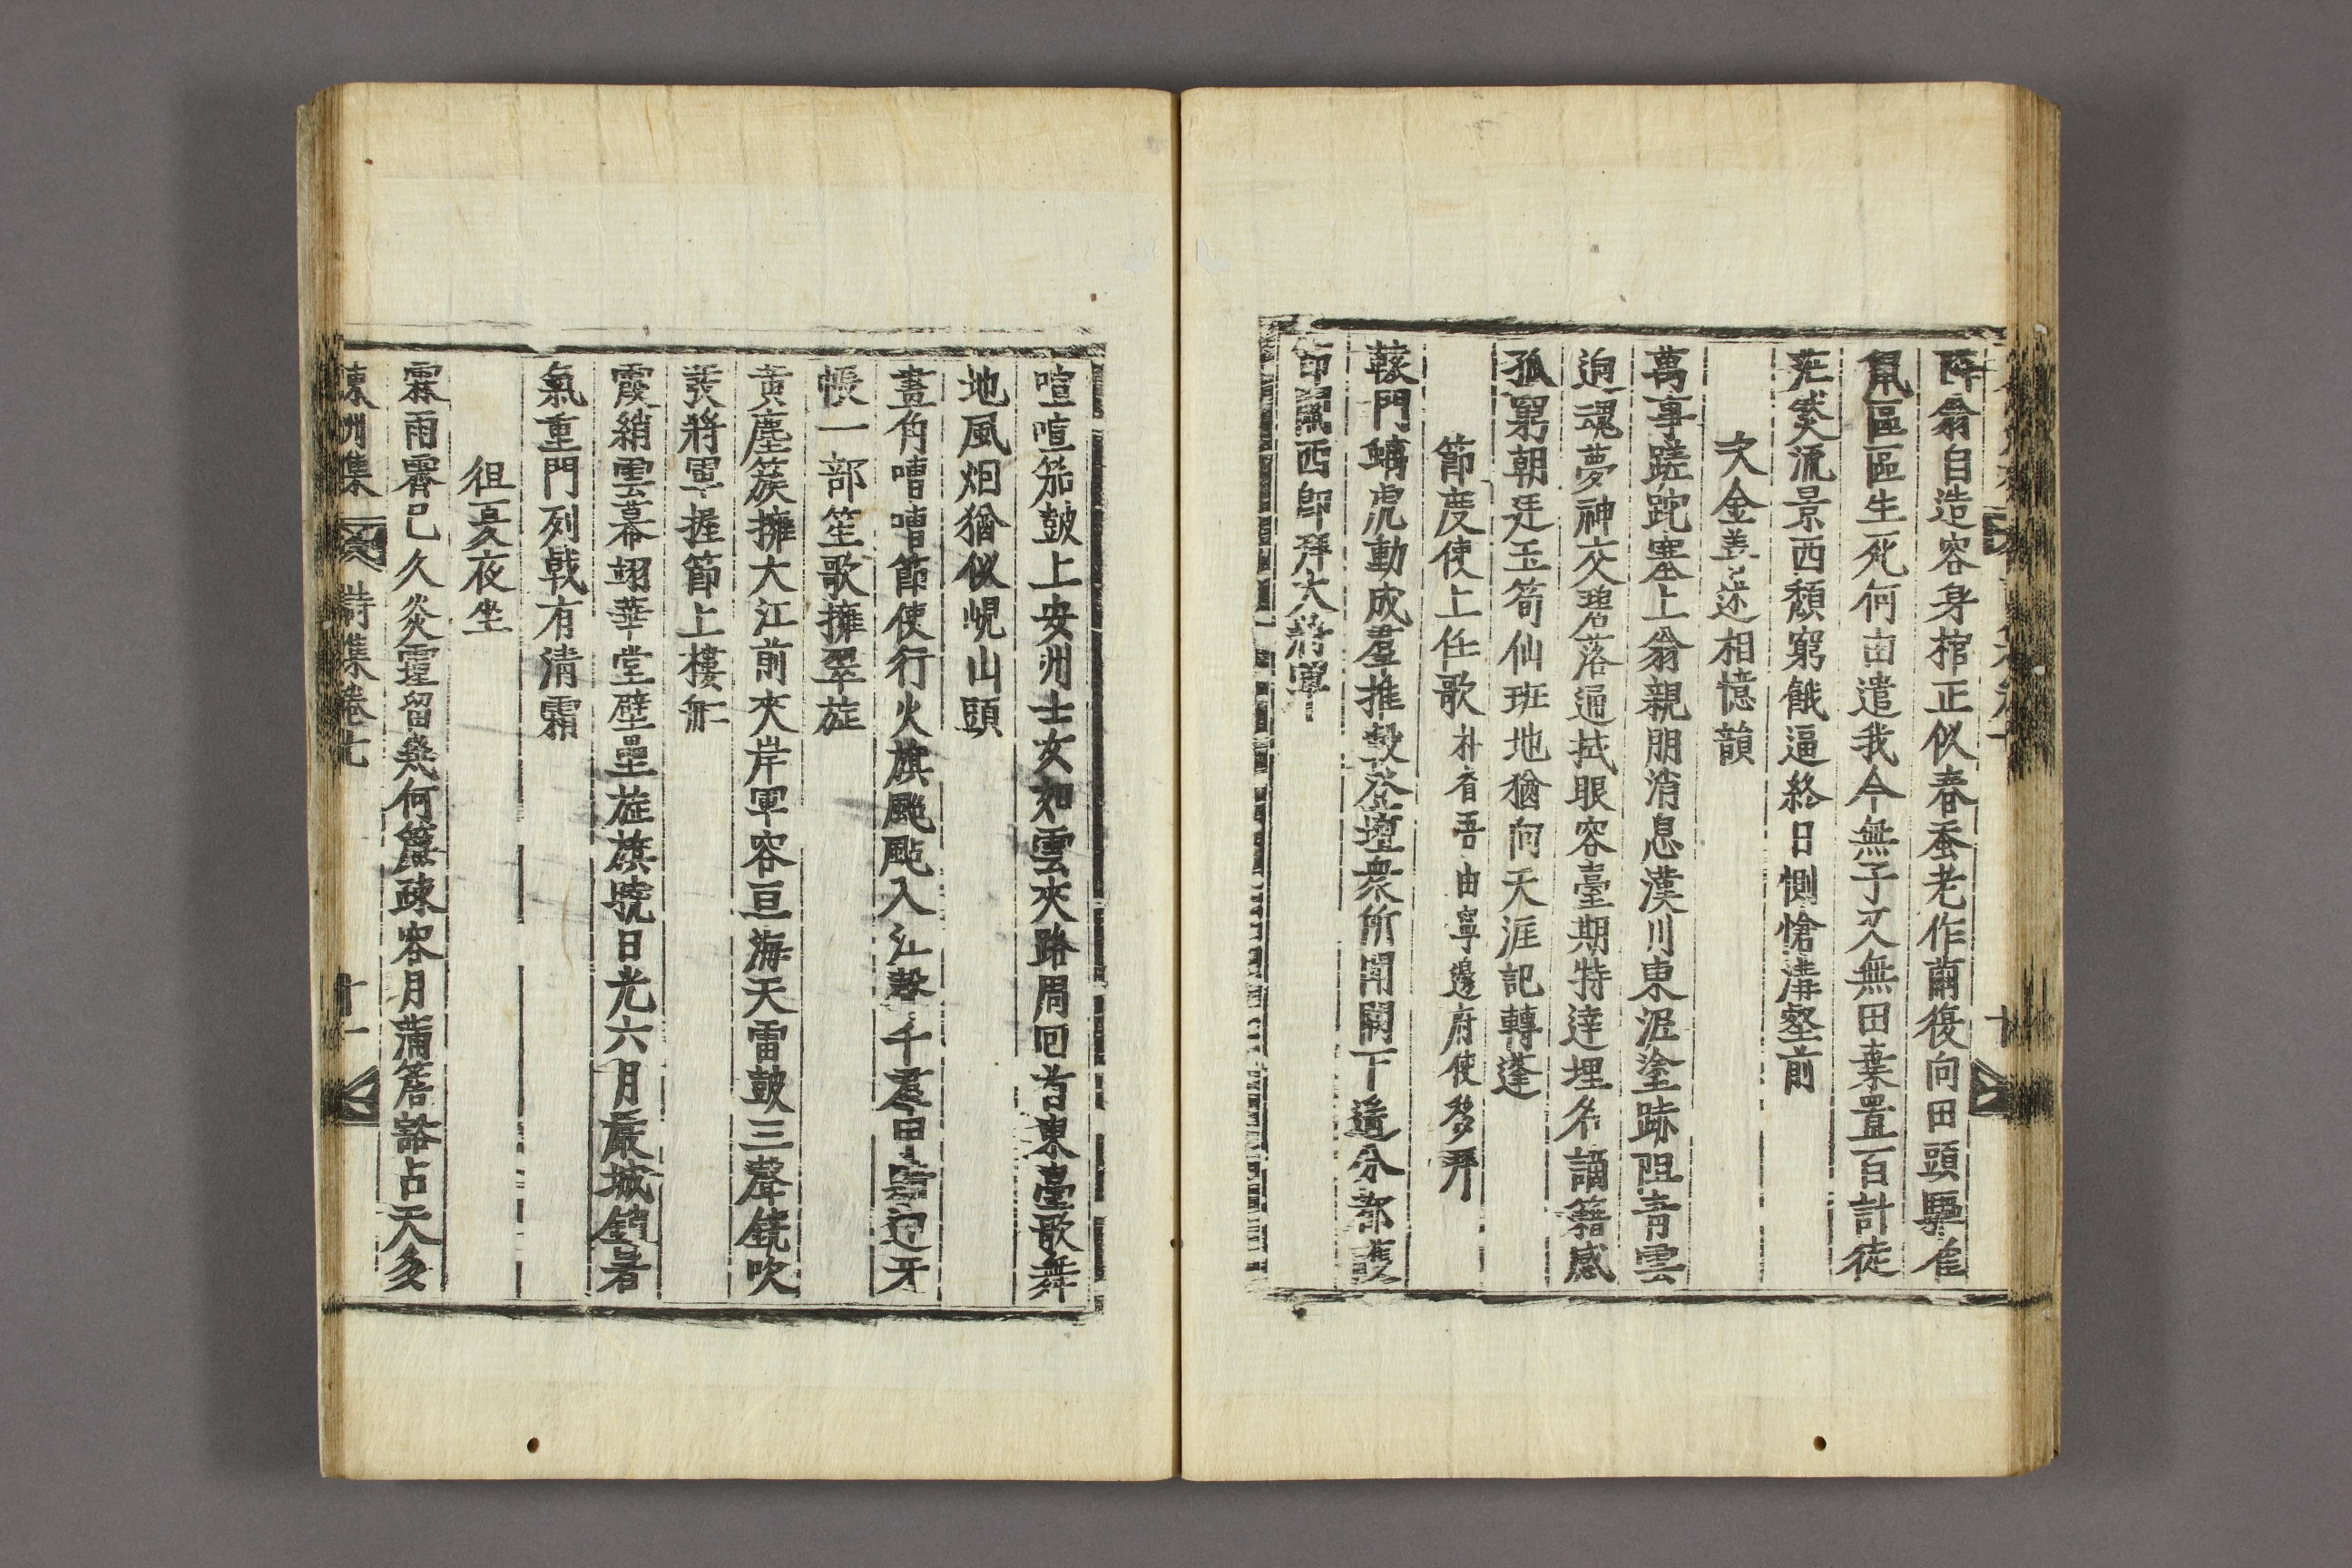 降翁自造容身棺正似春蚕老作繭復向田頭驅雀
鼠區區生死何由遣我今無子又無田棄置百計徒
茫然流景西頹窮餓逼終日惻愴溝壑前
次金善述相憶韻
萬事蹉跎塞上翁親朋消息漢川東泥塗跡阻青雲
逈魂夢神交碧落通拭眼容臺期特達埋名謫籍感
孤窮朝廷玉筍仙班地猶向天涯記轉蓬
節度使上任歌朴耆吾由寧邊府使移拜
轅門螭虎動成羣推轂登壇衆所聞閫下遙分都護
節關西卽拜大將軍
喧喧笳鼓上安州士女如雲夾路周回首東臺歌舞
地風烟猶似峴山頭
畫角嘈嘈節使行火旗颭颭入江聲千羣甲馬迎牙
帳一部笙歌擁翠旌
黃塵簇擁大江前夾岸軍容亘海天雷鼓三聲鐃吹
發將軍握節上樓舡
霞綃雲幕翊華堂壁壘旌旗曉日光六月嚴城銷暑
氣重門列戟有清霜
徂夏夜坐
霖雨霽已久炎霍留幾何簾疎容月蒲簷豁占天多
東洲集 詩集卷七 十一